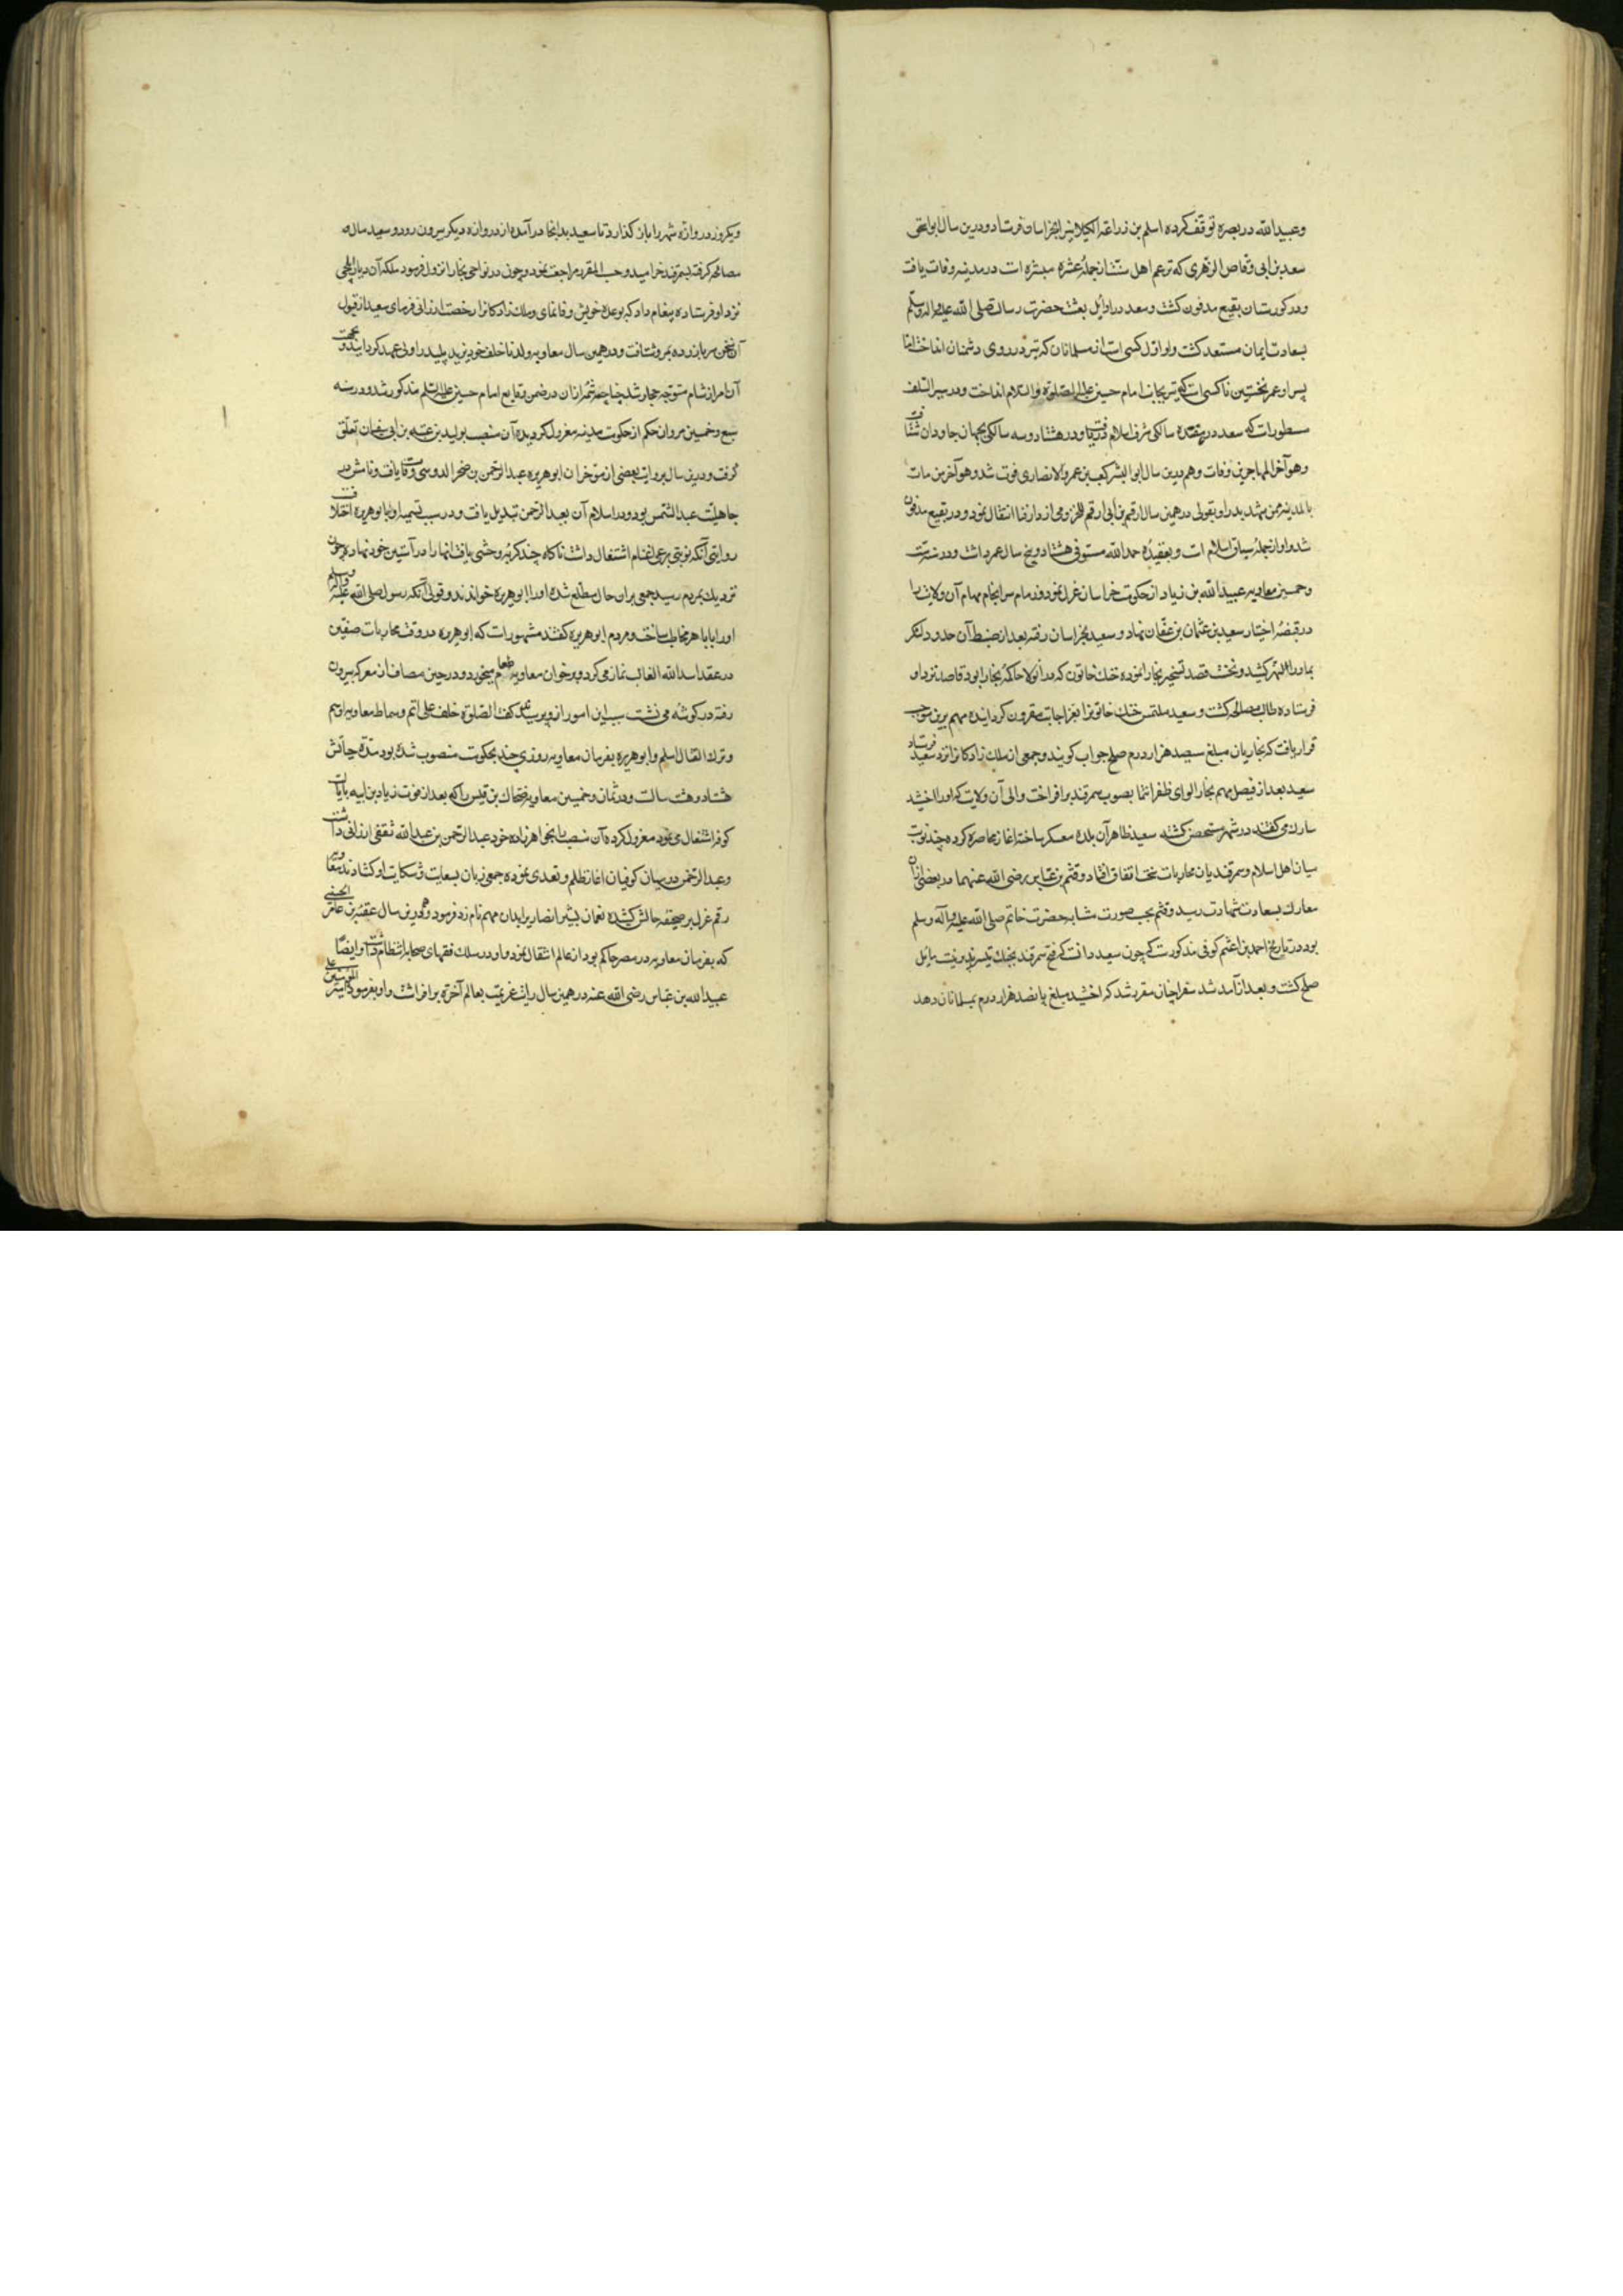 وعبیدالله در بصره توقف کرده اسلم بن زراعة الکیلابی را بخراسان فرستاد و درین سال ابو اسحق
سعد بن ابی وقاص الزهری که بزعم اهل سنت از جملهٔ عشره مبشره است در مدینه وفات یافت
و در کورستان بقیع مدفون کشت و سعد در اوایل بعثت حضرت رسالت صلی الله علیه واله وسلم
بسعادت ایمان مستعد کشت و او اول کسی است از مسلمانان که تیر در روی دشمنان انداخت اما
پسر او عمر نخستین ناکسی است که تیر بجانب امام حسین علیه الصلوة والسلام انداخت و در سیر السلف
مسطورات که سعد در هفده سالکی شرف اسلام دریافت و در هشتاد و سه سالکی بجهان جاودان شتافت
وهو آخر المهاجرین وفات و هم درین سال ابو الیسر کعب بن عمرو الانصاری فوت شد وهو آخر من مات
بالمدینه ممن شهد بدرا و بقولی در همین سال ارقم بن أبی ارقم المخزومی از دار فنا انتقال نمود و در بقیع مدفون
شد و او از جملهٔ سباق اسلام است و بعقیدهٔ حمدالله مستوفی هشتاد و پنج سال عمر داشت و در سنه ست
وخمسین معاویه عبیدالله بن زیاد از حکومت خراسان عزل نمود و زمام سرانجام مهام آن ولایت را
در قبضهٔ اختیار سعید بن عثمان بن عفان نهاد و سعید بخراسان رفته بعد از ضبط آن حدود لشکر
بماوراء النهر کشید و نخست قصد تسخیر بخارا نموده خنک خاتون که در انولا حاکمهٔ بخارا بود قاصد نزد او
فرستاده طالب مصالحه کشت و سعید ملتمس خنک خاتون را بعز اجابت مقرون کردانیده مهم برین موجب
قرار یافت که بخاریان مبلغ سیصد هزار درم صلح جواب کویند و جمعی از ملک زادکان را نزد سعید فرستاد
سعید بعد از فیصل مهم بخارا لوای ظفر انتما بصوب سمرقند برافراخت و والی آن ولایت که او را اخشید
سارک می کفتند در شهر متحصن کشته سعید ظاهر آن بلده معسکر ساخته اغاز محاصره کرده چند نوبت
میان اهل اسلام و سمرقندیان محاربات سخت اتفاق افتاد و قثم بن عباس رضی الله عنهما در بعضی ازان
معارک بسعادت شهادت رسید و قثم بحسب صورت مشابه حضرت خاتم صلی الله علیه وآله وسلم
بود در تاریخ احمد بن اعثم کوفی مذکورست که چون سعید دانست که فتح سمرقند بجنک تیسر پذیر نیست مایل
صلح کشت و بعد از آمد شد سفرا چنان مقرر شد که اخشید مبلغ پانصد هزار درم بمسلمانان دهد
ویکروز دروازه شهر را باز کذارد تا سعید بدانجا درآمده از دروازه دیکر بیرون رود و سعید مال
مصالحه کرفته بسمرقند خرامید و حسب المقرر مراجعت نمود و چون در نواحی بخارا نزول فرمود ملکه آن دیار ایلچی
نزد او فرستاده پیغام داد که بوعدهٔ خویش وفا نمای و ملک زادکانرا رخصت ارزانی فرمای سعید از قبول
آن سخن سر باز زده بمرو شتافت و در همین سال معاویه ولد ناخلف خود یزید پلید را ولی عهد کردانید و بجهت
آن امر از شام متوجه حجاز شد چنانچه شمهٔ ازان در ضمن وقایع امام حسین علیه السلم مذکور شد و در سنه
سبع وخمسین مروان حکم از حکومت مدینه معزول کردیده آن منصب بولید بن عتبه بن ابی سفیان تعلق
کرفت و درین سال بروایت بعضی از مورخان ابو هریره عبد الرحمن بن صخر الدوسی وفات یافت و نامش در
جاهلیت عبد الشمس بود و در اسلام آن بعبد الرحمن تبدیل یافت و در سبب تسمیه او بابو هریره اختلافست
روایتی آنکه نوبتی برعی اغنام اشتغال داشت ناکاه چند کربهٔ وحشی یافت انها را در آستین خود نهاده چون
نزدیک بمردم رسید جمعی بران حال مطلع شده او را ابو هریره خواندند و قولی آنکه رسول صلی الله علیه واله وسلم
او را بابا هر مخاطب ساخت و مردم ابو هریره کفتند مشهورات که ابو هریره در وقت محاربات صفین
در عقد اسد الله الغالب نماز می کرد و بر خوان معاویه طعام میخورد و در حین مصاف از معرکه بیرون
رفته در کوشه می نشست سبب این امور از وی پرسیدند کفت الصلوة خلف علی اتم وسماط معاویه ادسم
وترک القتال اسلم و ابو هریره بفرمان معاویه روزی چند بحکومت منصوب شده بود مدة حیاتش
هشتاد و هشت سالست و در ثمان وخمسین معاویه ضحاک بن قیس را که بعد از فوت زیاد بن ابیه بایالت
کوفه اشتغال می نمود معزول کرده آن منصب را بخواهرزاده خود عبد الرحمن بن عبد الله ثقفی ارزانی داشت
وعبد الرحمن در میان کوفیان اغاز ظلم و تعدی نموده جمعی زبان بسعایت و شکایت او کشادند معاویه
رقم عزل بر صحیفه حالش کشیده نعمان بشیر انصاری را بدان مهم نام زد فرمود و هم درین سال عقبة بن عامر الجهنی
که بفرمان معاویه در مصر حاکم بود از عالم انتقال نمود و او در سلک فقهای صحابه انتظام داشت و ایضا
عبیدالله بن عباس رضی الله عنه در همین سال رایت عزیمت بعالم آخرة برافراشت و او بفرموده امیر المؤمنین علی